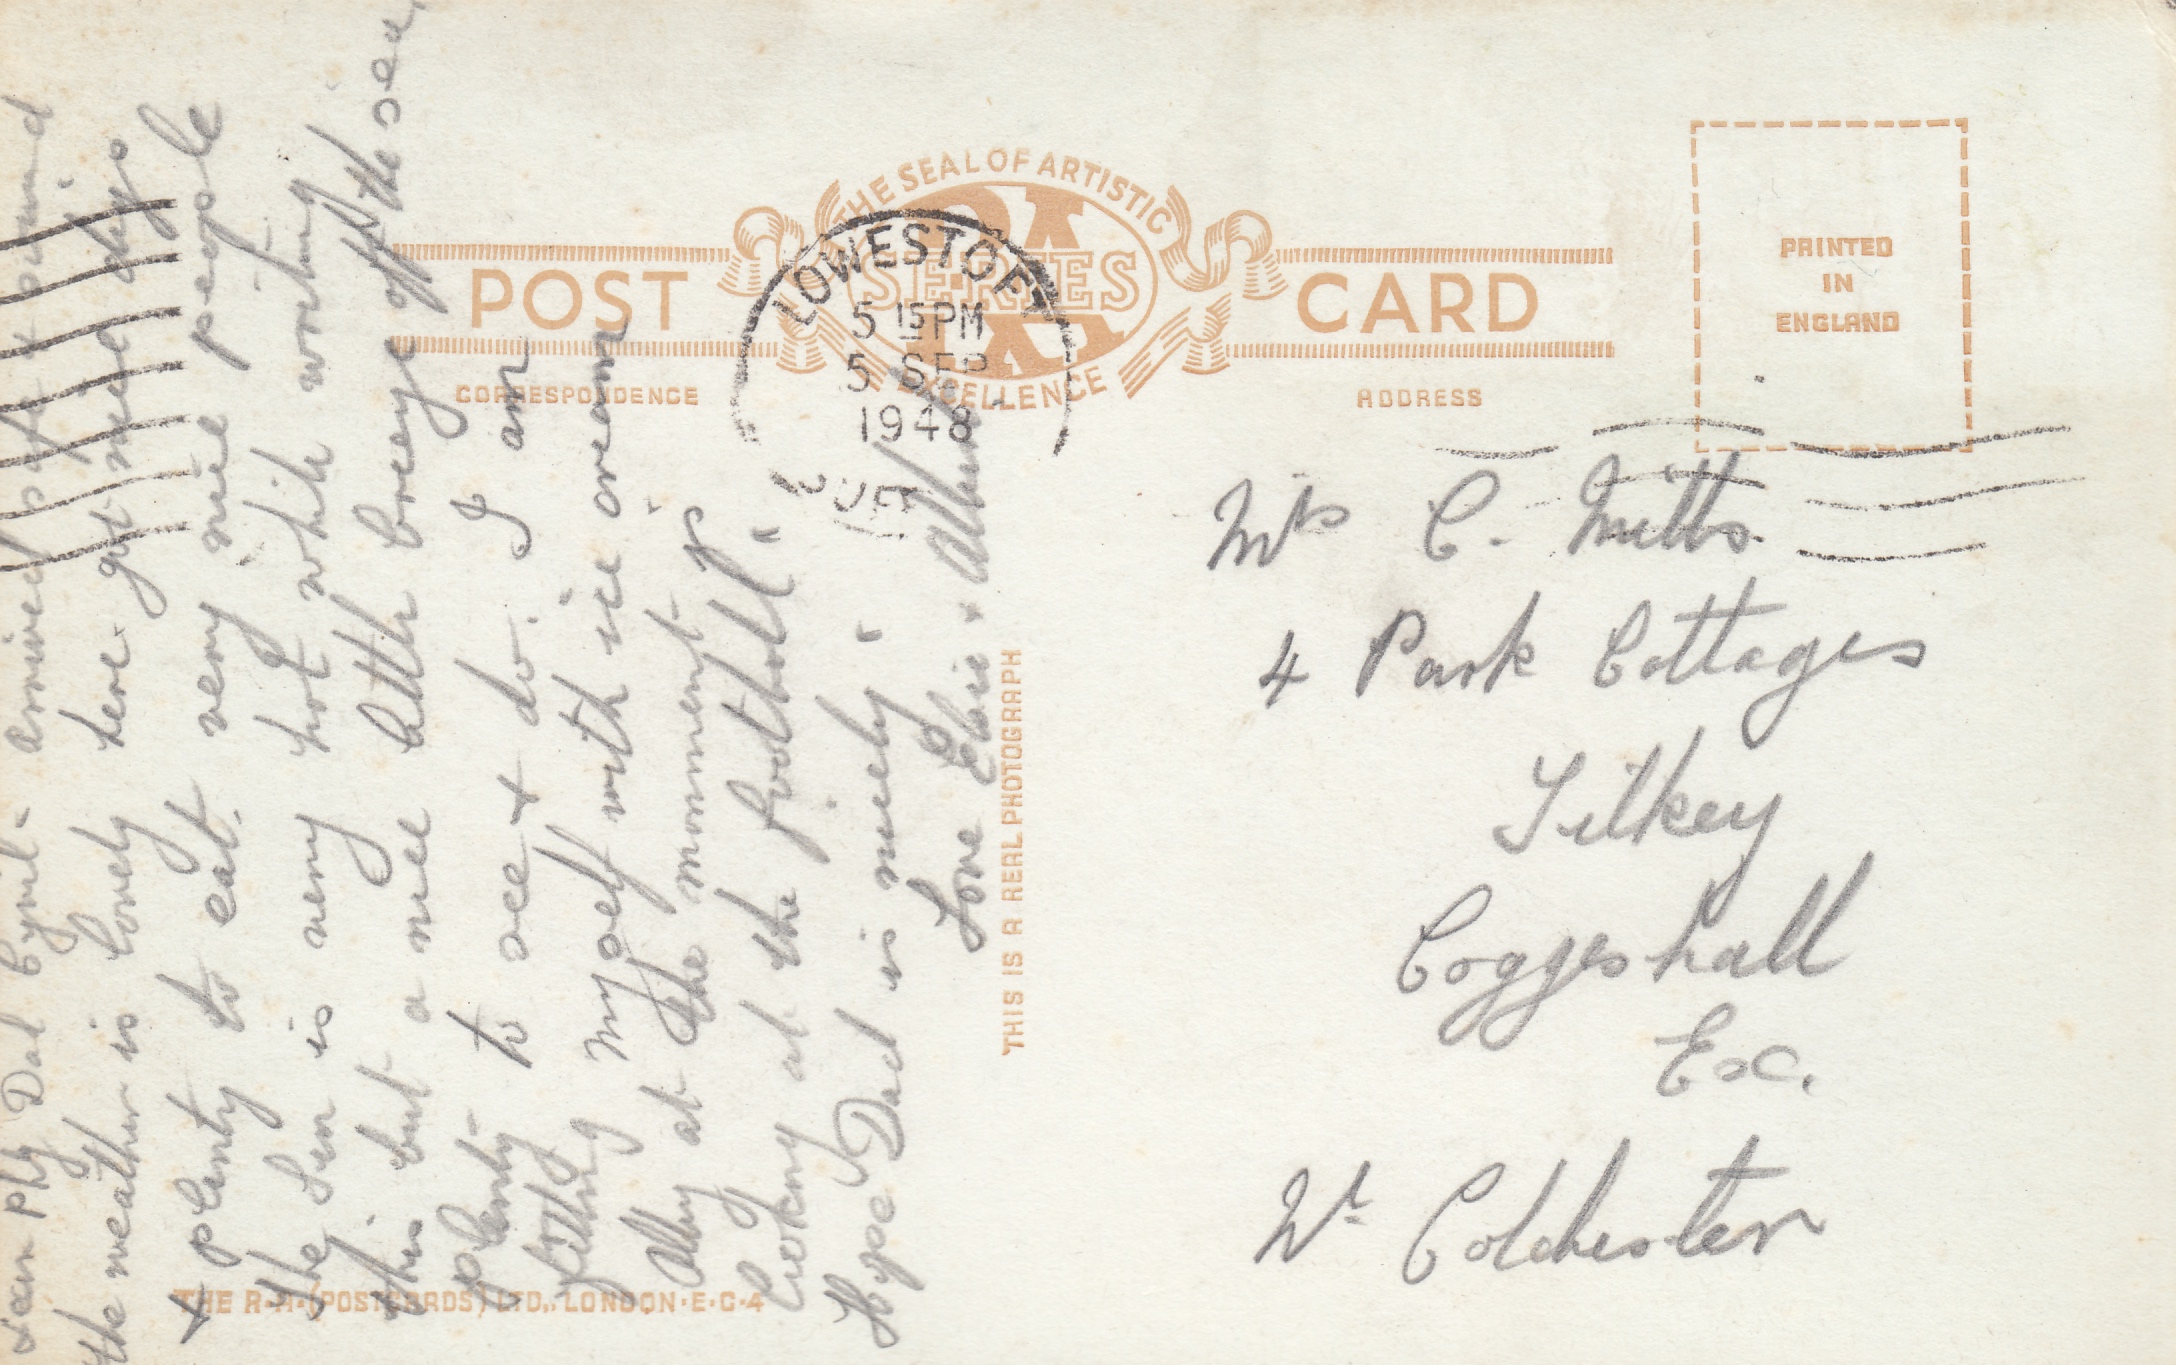 THE SEAL OF ARTISTIC
EXCELLENCE
RA
SERIES
POST CARD
CORRESPONDENCE
ADDRESS
PRINTED
IN
ENGLAND
LOWESTOFT
5 15 PM
5 SEP
1948
Dear Phy Dad Cyril - Arrived safe & sound
the weather is lovely here got nice digs
& plenty to eat. very nice people
The Sun is very hot while writing
this but a nice little breeze off the sea,
plenty to see & do. I am
filling myself with ice cream
Alby at the momment
looking at the football "
Hope Dad is nicely "
Love Elsie & Albert
THIS IS A REAL PHOTOGRAPH
THE R.A. (POSTCARDS) LTD., LONDON.E.C.4
Mrs C.
4 Park Cottages
Tilkey
Coggeshall
Esx.
Nr Colchester